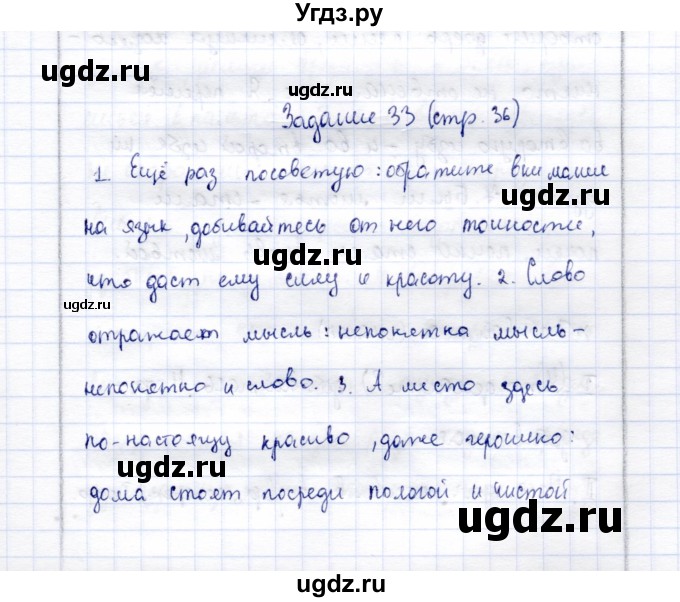 Угдз.ру
ugdz.ru
ugdz.ru
Задание 33 (стр. 36)
1. Ещё раз посоветую: обратите внимание
ugdz.ru
на язык, добивайтесь от него точности,
ugdz.ru
что даст ему силу и красоту. 2. Слово
ugdz.ru
отражает мысль: непонятна мысль-
ugdz.ru
непонятно и слово. 3. А место здесь
по-настоящу красиво, даже
ugdz.ru
дома стоят посреди пологой и чистой
ugdz.ru
ugdz.ru